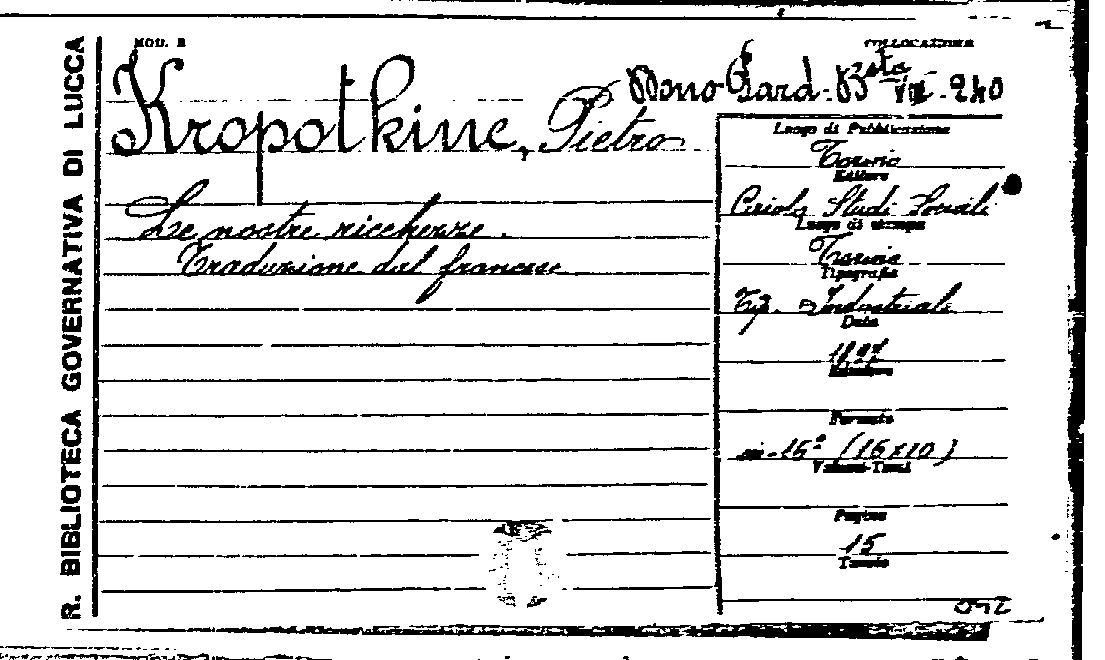 R. BIBLIOTECA GOVERNATIVA DI LUCCA
MOD. B
COLLOCAZIONE
Kropotkine, Pietro
Le nostre ricchezze.
Traduzione dal francese
Luogo di Pubblicazione
Torino
Editore
Studi Sociali
Luogo di stampa
Torino
Tipografia
Tip. Industriale
Data
Formato
in-16° (16x10)
Volumi-Tomi
Pagine
15
Tavole